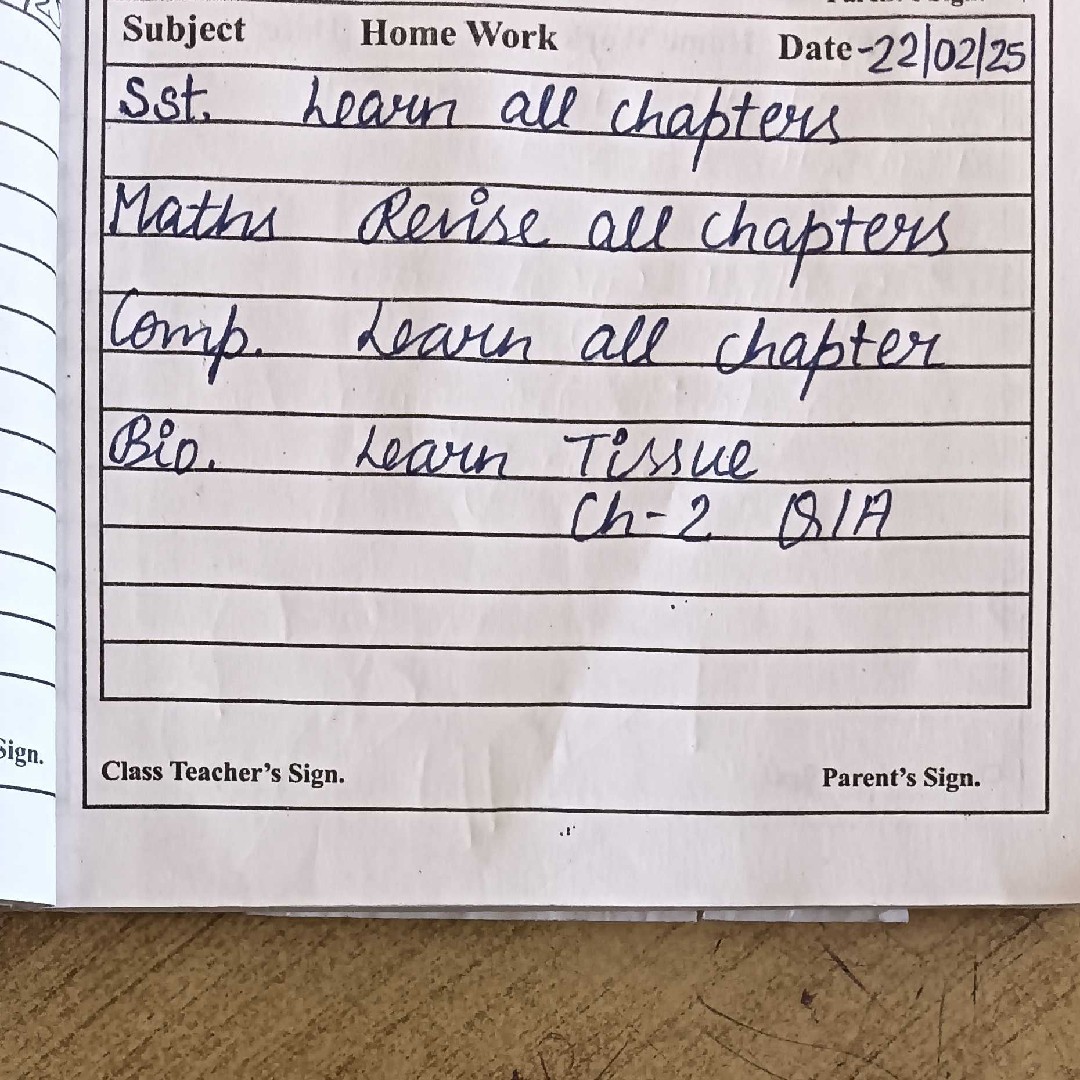 Subject Home Work Date-22/02/25
Sst. Learn all chapters
Maths Revise all chapters
Comp. Learn all chapter
Bio. Learn Tissue
Ch-2 Q/A
Sign.
Class Teacher's Sign. Parent's Sign.